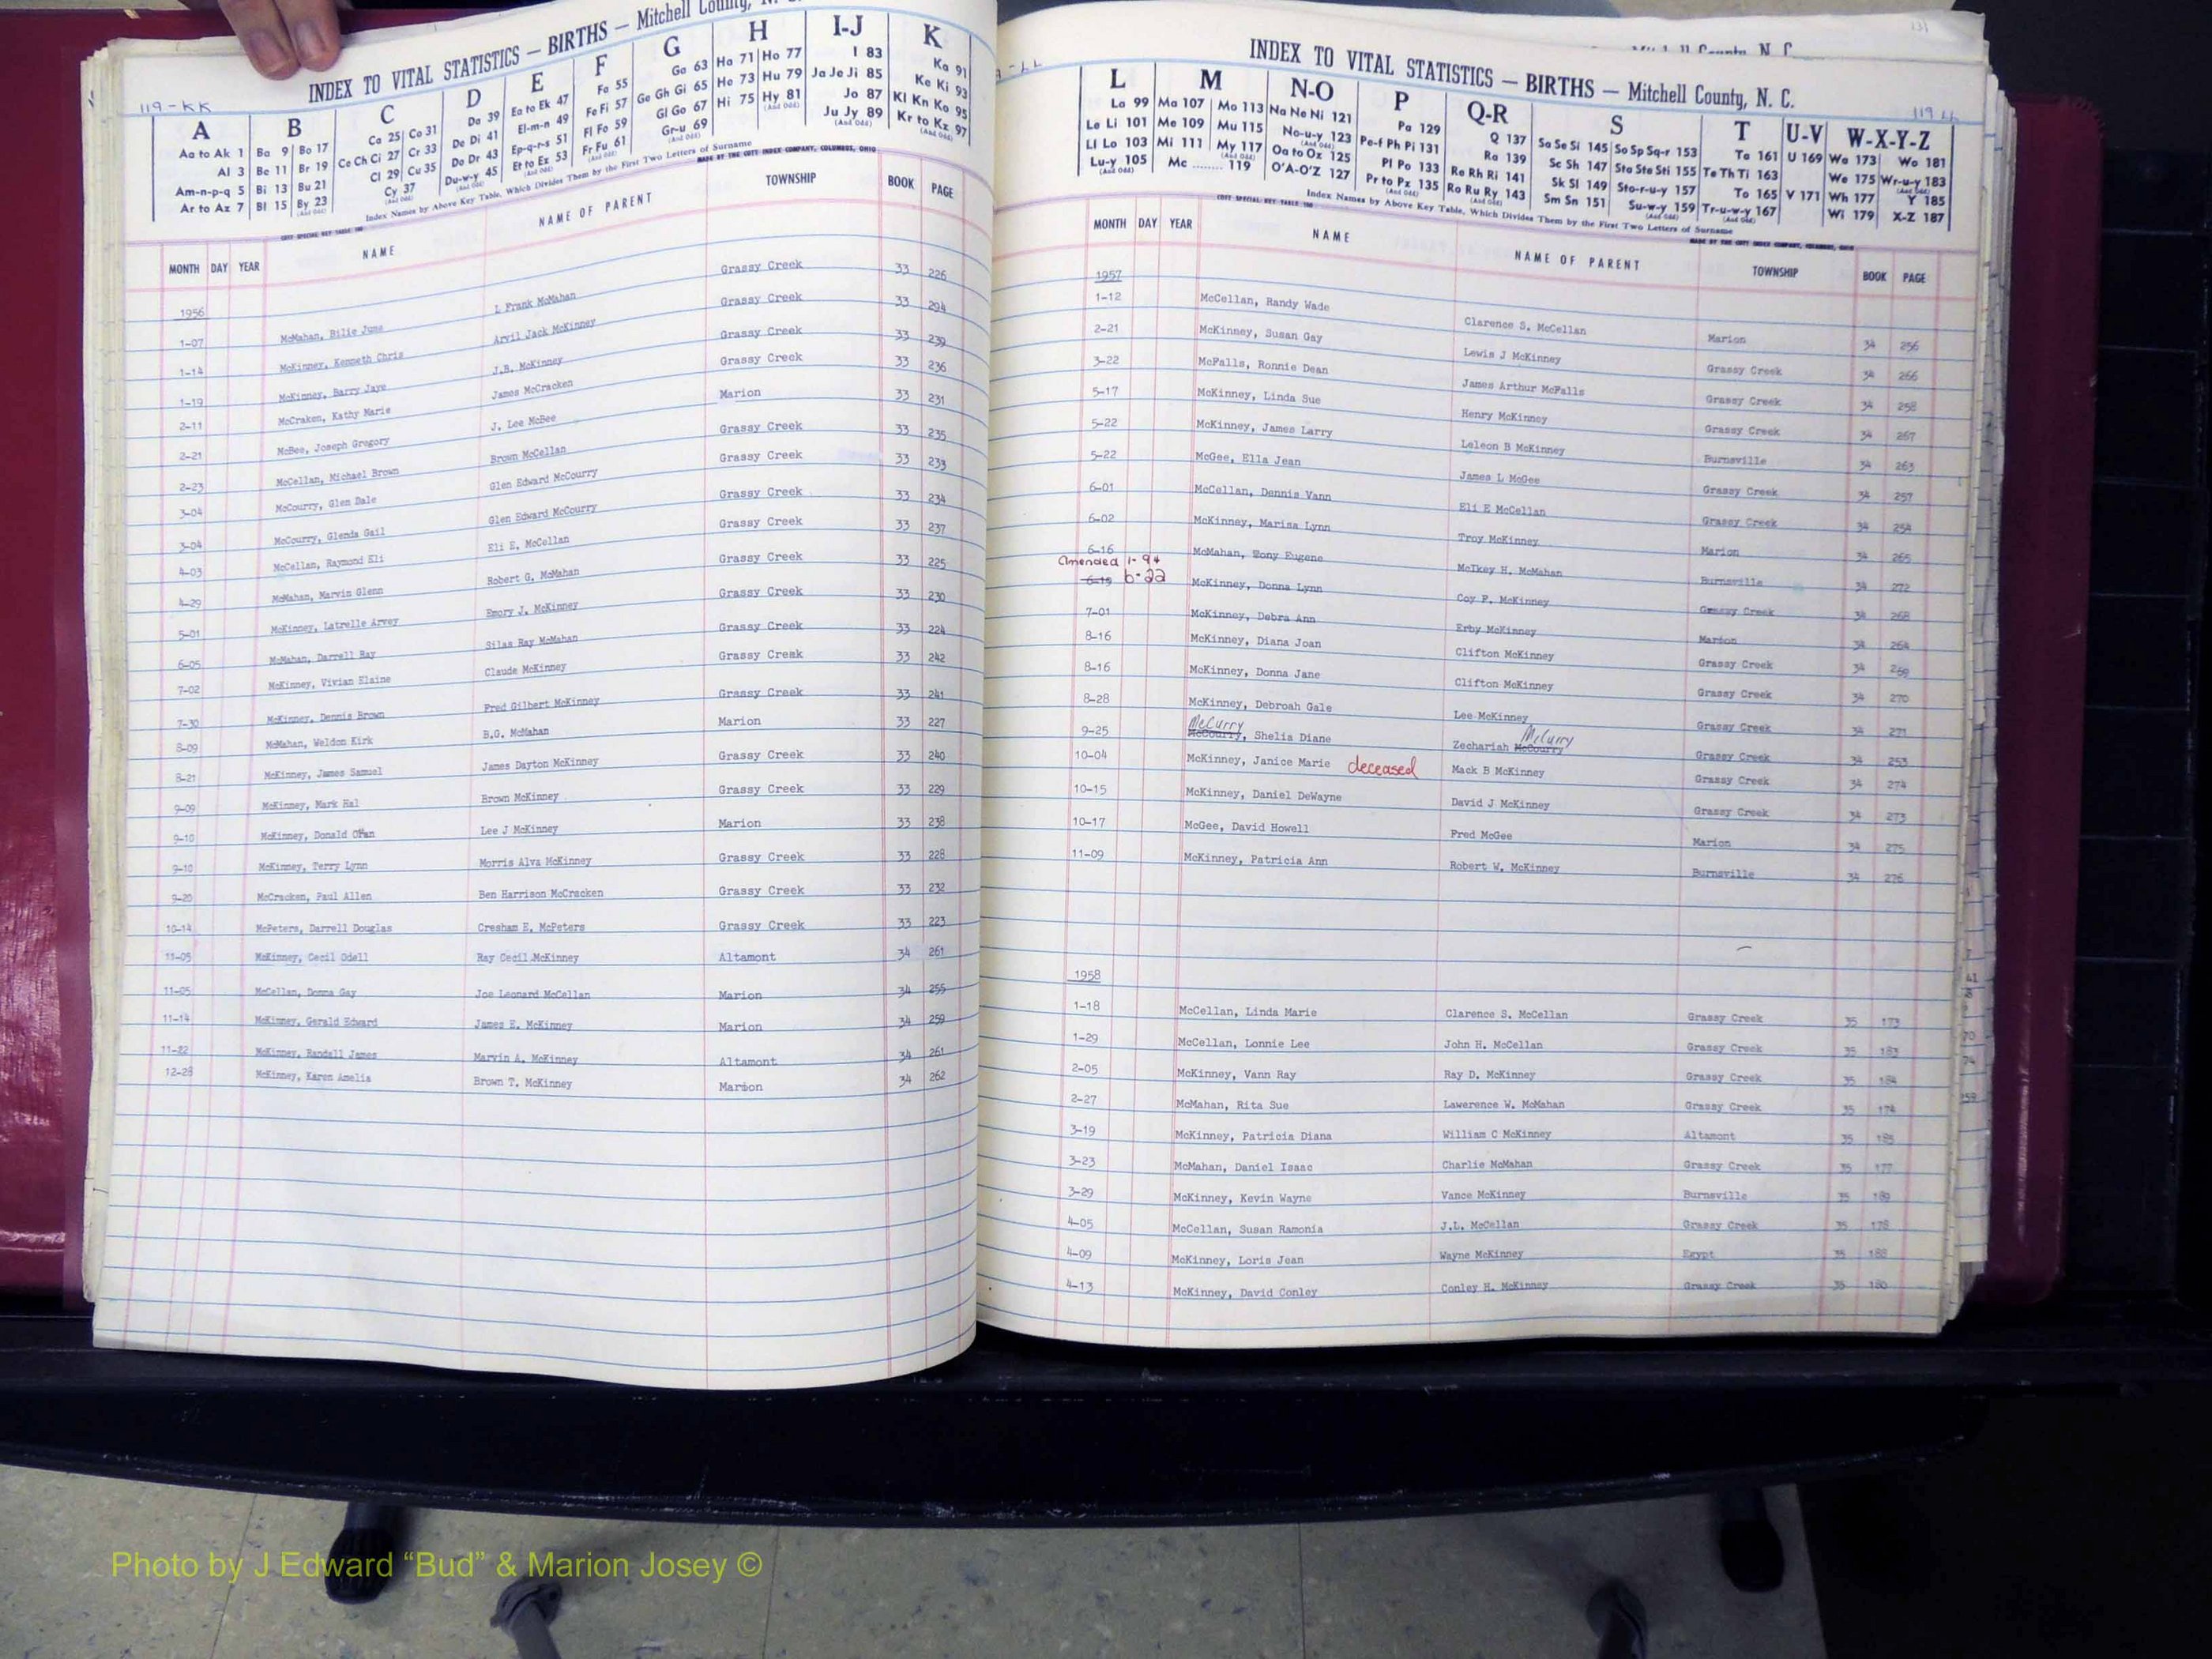 119-KK
INDEX TO VITAL STATISTICS — BIRTHS — Mitchell County, N. C.
A B C D E F G H I-J K
Aa to Ak 1 Ba 9 Bo 17 Ca 25 Co 31 Da 39 Ea to Ek 47 Fa 55 Ga 63 Ha 71 Ho 77 I 83 Ka 91
Al 3 Be 11 Br 19 Ce Ch Ci 27 Cr 33 De Di 41 El-m-n 49 Fe Fi 57 Ge Gh Gi 65 He 73 Hu 79 Ja Je Ji 85 Ke Ki 93
Am-n-p-q 5 Bi 13 Bu 21 Cl 29 Cu 35 Do Dr 43 Ep-q-r-s 51 Fl Fo 59 Gl Go 67 Hi 75 Hy 81 Jo 87 Kl Kn Ko 95
Ar to Az 7 Bl 15 By 23 Cy 37 Du-w-y 45 Et to Ez 53 Fr Fu 61 Gr-u 69 Ju Jy 89 Kr to Kz 97
Index Names by Above Key Table, Which Divides Them by the First Two Letters of Surname
MADE BY THE COTT INDEX COMPANY, COLUMBUS, OHIO
MONTH DAY YEAR NAME NAME OF PARENT TOWNSHIP BOOK PAGE
1956
1-07 McMahan, Bilie June L Frank McMahan Grassy Creek 33 226
1-14 McKinney, Kenneth Chris Arvil Jack McKinney Grassy Creek 33 294
1-19 McKinney, Barry Jaye J.B. McKinney Grassy Creek 33 239
2-11 McCraken, Kathy Marie James McCracken Grassy Creek 33 236
2-21 McBee, Joseph Gregory J. Lee McBee Marion 33 231
2-23 McCellan, Michael Brown Brown McCellan Grassy Creek 33 235
3-04 McCourry, Glen Dale Glen Edward McCourry Grassy Creek 33 233
3-04 McCourry, Glenda Gail Glen Edward McCourry Grassy Creek 33 234
4-03 McCellan, Raymond Eli Eli E. McCellan Grassy Creek 33 237
4-29 McMahan, Marvin Glenn Robert G. McMahan Grassy Creek 33 225
5-01 McKinney, Latrelle Arvey Emory J. McKinney Grassy Creek 33 230
6-05 McMahan, Darrell Ray Silas Ray McMahan Grassy Creek 33 224
7-02 McKinney, Vivian Elaine Claude McKinney Grassy Creek 33 242
7-30 McKinney, Dennis Brown Fred Gilbert McKinney Grassy Creek 33 241
8-09 McMahan, Weldon Kirk B.G. McMahan Marion 33 227
8-21 McKinney, James Samuel James Dayton McKinney Grassy Creek 33 240
9-09 McKinney, Mark Hal Brown McKinney Grassy Creek 33 229
9-10 McKinney, Donald Lee J McKinney Marion 33 238
9-10 McKinney, Terry Lynn Morris Alva McKinney Grassy Creek 33 228
9-20 McCracken, Paul Allen Ben Harrison McCracken Grassy Creek 33 232
10-14 McPeters, Darrell Douglas Cresham E. McPeters Grassy Creek 33 223
11-05 McKinney, Cecil Odell Ray Cecil McKinney Altamont 34 261
11-05 McCellan, Donna Gay Joe Leonard McCellan Marion 34 255
11-14 McKinney, Gerald Edward James E. McKinney Marion 34 259
11-22 McKinney, Randall James Marvin A. McKinney Altamont 34 261
12-28 McKinney, Karen Amelia Brown T. McKinney Marion 34 262
131
119 LL
INDEX TO VITAL STATISTICS — BIRTHS — Mitchell County, N. C.
L M N-O P Q-R S T U-V W-X-Y-Z
La 99 Ma 107 Mo 113 Na Ne Ni 121 Pa 129 Q 137 Sa Se Si 145 So Sp Sq-r 153 Ta 161 U 169 Wa 173 Wo 181
Le Li 101 Me 109 Mu 115 No-u-y 123 Pe-f Ph Pi 131 Ra 139 Sc Sh 147 Sta Ste Sti 155 Te Th Ti 163 We 175 Wr-u-y 183
Ll Lo 103 Mi 111 My 117 Oa to Oz 125 Pl Po 133 Re Rh Ri 141 Sk Sl 149 Sto-r-u-y 157 To 165 V 171 Wh 177 Y 185
Lu-y 105 Mc ........ 119 O'A-O'Z 127 Pr to Pz 135 Ro Ru Ry 143 Sm Sn 151 Su-w-y 159 Tr-u-w-y 167 Wi 179 X-Z 187
Index Names by Above Key Table, Which Divides Them by the First Two Letters of Surname
MADE BY THE COTT INDEX COMPANY, COLUMBUS, OHIO
MONTH DAY YEAR NAME NAME OF PARENT TOWNSHIP BOOK PAGE
1957
1-12 McCellan, Randy Wade Clarence S. McCellan Marion 34 256
2-21 McKinney, Susan Gay Lewis J McKinney Grassy Creek 34 266
3-22 McFalls, Ronnie Dean James Arthur McFalls Grassy Creek 34 258
5-17 McKinney, Linda Sue Henry McKinney Grassy Creek 34 267
5-22 McKinney, James Larry Leleon B McKinney Burnsville 34 263
5-22 McGee, Ella Jean James L McGee Grassy Creek 34 257
6-01 McCellan, Dennis Vann Eli E McCellan Grassy Creek 34 254
6-02 McKinney, Marisa Lynn Troy McKinney Marion 34 265
6-16 McMahan, Tony Eugene McIkey H. McMahan Burnsville 34 272
Amended 1-94
6-19 6-22 McKinney, Donna Lynn Coy P. McKinney Grassy Creek 34 268
7-01 McKinney, Debra Ann Erby McKinney Marion 34 264
8-16 McKinney, Diana Joan Clifton McKinney Grassy Creek 34 269
8-16 McKinney, Donna Jane Clifton McKinney Grassy Creek 34 270
8-28 McKinney, Debroah Gale Lee McKinney Grassy Creek 34 271
McCurry McCurry
9-25 McCourry, Shelia Diane Zechariah McCourry Grassy Creek 34 253
10-04 McKinney, Janice Marie deceased Mack B McKinney Grassy Creek 34 274
10-15 McKinney, Daniel DeWayne David J McKinney Grassy Creek 34 273
10-17 McGee, David Howell Fred McGee Marion 34 275
11-09 McKinney, Patricia Ann Robert W. McKinney Burnsville 34 276
1958
1-18 McCellan, Linda Marie Clarence S. McCellan Grassy Creek 35 173
1-29 McCellan, Lonnie Lee John H. McCellan Grassy Creek 35 183
2-05 McKinney, Vann Ray Ray D. McKinney Grassy Creek 35 184
2-27 McMahan, Rita Sue Lawerence W. McMahan Grassy Creek 35 174
3-19 McKinney, Patricia Diana William C McKinney Altamont 35 185
3-23 McMahan, Daniel Isaac Charlie McMahan Grassy Creek 35 177
3-29 McKinney, Kevin Wayne Vance McKinney Burnsville 35 189
4-05 McCellan, Susan Ramonia J.L. McCellan Grassy Creek 35 178
4-09 McKinney, Loris Jean Wayne McKinney Egypt 35 188
4-13 McKinney, David Conley Conley H. McKinney Grassy Creek 35 180
Photo by J Edward “Bud” & Marion Josey ©